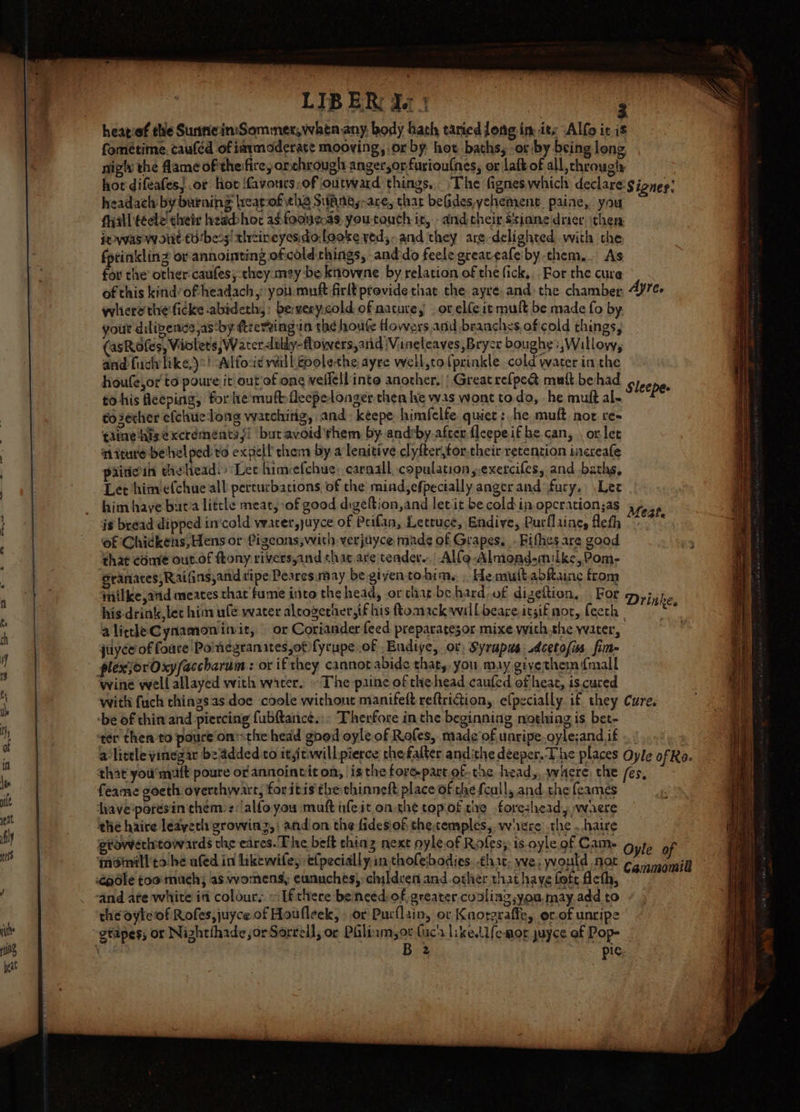 LIBER I. 3
heat of the Sunne in Sommer, when any body hath taried long in it. Alſo it is
ſometime cauſed of immoderate mooving, or by hot baths, or by being long
nigh the flame of the fire, or through anger, or furiouſnes, or laſt of all, through
hot diſeaſes, or hot ſavours of outward things. The ſignes which declare Signes.
headach by burning heat of the Sunne, are, that beſides vehement paine, you
ſhall feele their head hot as ſoone as you touch it, and their skinne drier then
it was wont to be: their eyes do looke red, and they are delighted with the
ſprinkling or annointing of cold things, and do feele great eaſe by them. As
for the other cauſes, they may be knowne by relation of the ſick. For the cure
of this kind of headach, you muſt firſt provide that the ayre and the chamber Ayre.
where the ſicke abideth, be very cold of nature, or elſe it muſt be made ſo by
your diligence, as by ſtrewing in the houſe flowers and branches of cold things,
(as Roſes, Violets, Water-lilly-flowers, and Vineleaves, Bryer boughes, Willow,
and ſuch like.) Alſo it will coole the ayre well, to ſprinkle cold water in the
houſe, or to poure it out of one veſſell into another. Great reſpect muſt be had Sleepe.
to his ſleeping, for he muſt ſleepe longer then he was wont to do, he muſt al-
together eſchue long watching, and keepe himſelfe quiet: he muſt not re-
taine his excrements, but avoid them by and by after ſleepe if he can, or let
nature be helped to expell them by a lenitive clyſter, for their retention increaſe
paine in the head. Let him eſchue carnall copulation, exerciſes, and baths.
Let him eſchue all perturbations of the mind, eſpecially anger and fury. Let
him have but a little meat, of good digeſtion, and let it be cold in operation, as Meat.
is bread dipped in cold water, juyce of Ptiſan, Lettuce, Endive, Purſlaine, fleſh
of Chickens, Hens or Pigeons, with verjuyce made of Grapes. Fiſhes are good
that come out of ſtony rivers, and that are tender. Alſo Almond-milke, Pom-
granates, Raiſins, and ripe Peares may be given to him. He muſt abſtaine from
milke, and meates that fume into the head, or that be hard of digeſtion. For Drinke.
his drink, let him uſe water altogether, if his ſtomack will beare it, if not, ſeeth
a little Cynamon in it, or Coriander ſeed preparates, or mixe with the water,
juyce of ſoure Pomegranates, or ſyrupe of Endive, or Syrupus Acetoſus ſim-
plex, or Oxyſaccharum: or if they cannot abide that, you may give them ſmall
wine well allayed with water. The paine of the head cauſed of heat, is cured
with ſuch things as doe coole without manifeſt reſtriction, eſpecially if they Cure.
be of thin and piercing ſubſtance. Therfore in the beginning nothing is bet-
ter then to poure on the head good oyle of Roſes, made of unripe oyle: and if
a little vinegar be added to it, it will pierce the faſter and the deeper. The places Oyle of Ro-
that you muſt poure or annoint it on, is the forepart of the head, where the ſes.
ſeame goeth overthwart, for it is the thinneſt place of the ſcull, and the ſeames
have pores in them: alſo you muſt uſe it on the top of the forehead, where
the haire leaveth growing, and on the ſides of the temples, where the haire
groweth towards the eares. The beſt thing next oyle of Roſes, is oyle of Cam- Oyle of
momill to be uſed in likewiſe, eſpecially in thoſe bodies that we would not Cammomill
coole too much, as womens, eunuches, children and other that have ſoft fleſh,
and are white in colour. If there be need of greater cooling, you may add to
the oyle of Roſes, juyce of Houſleek, or Purſlain, or Knotgraſſe, or of unripe
grapes, or Nightſhade, or Sorrell, or Pſilium, or ſuch like. Uſe not juyce of Pop-
B 2 pie